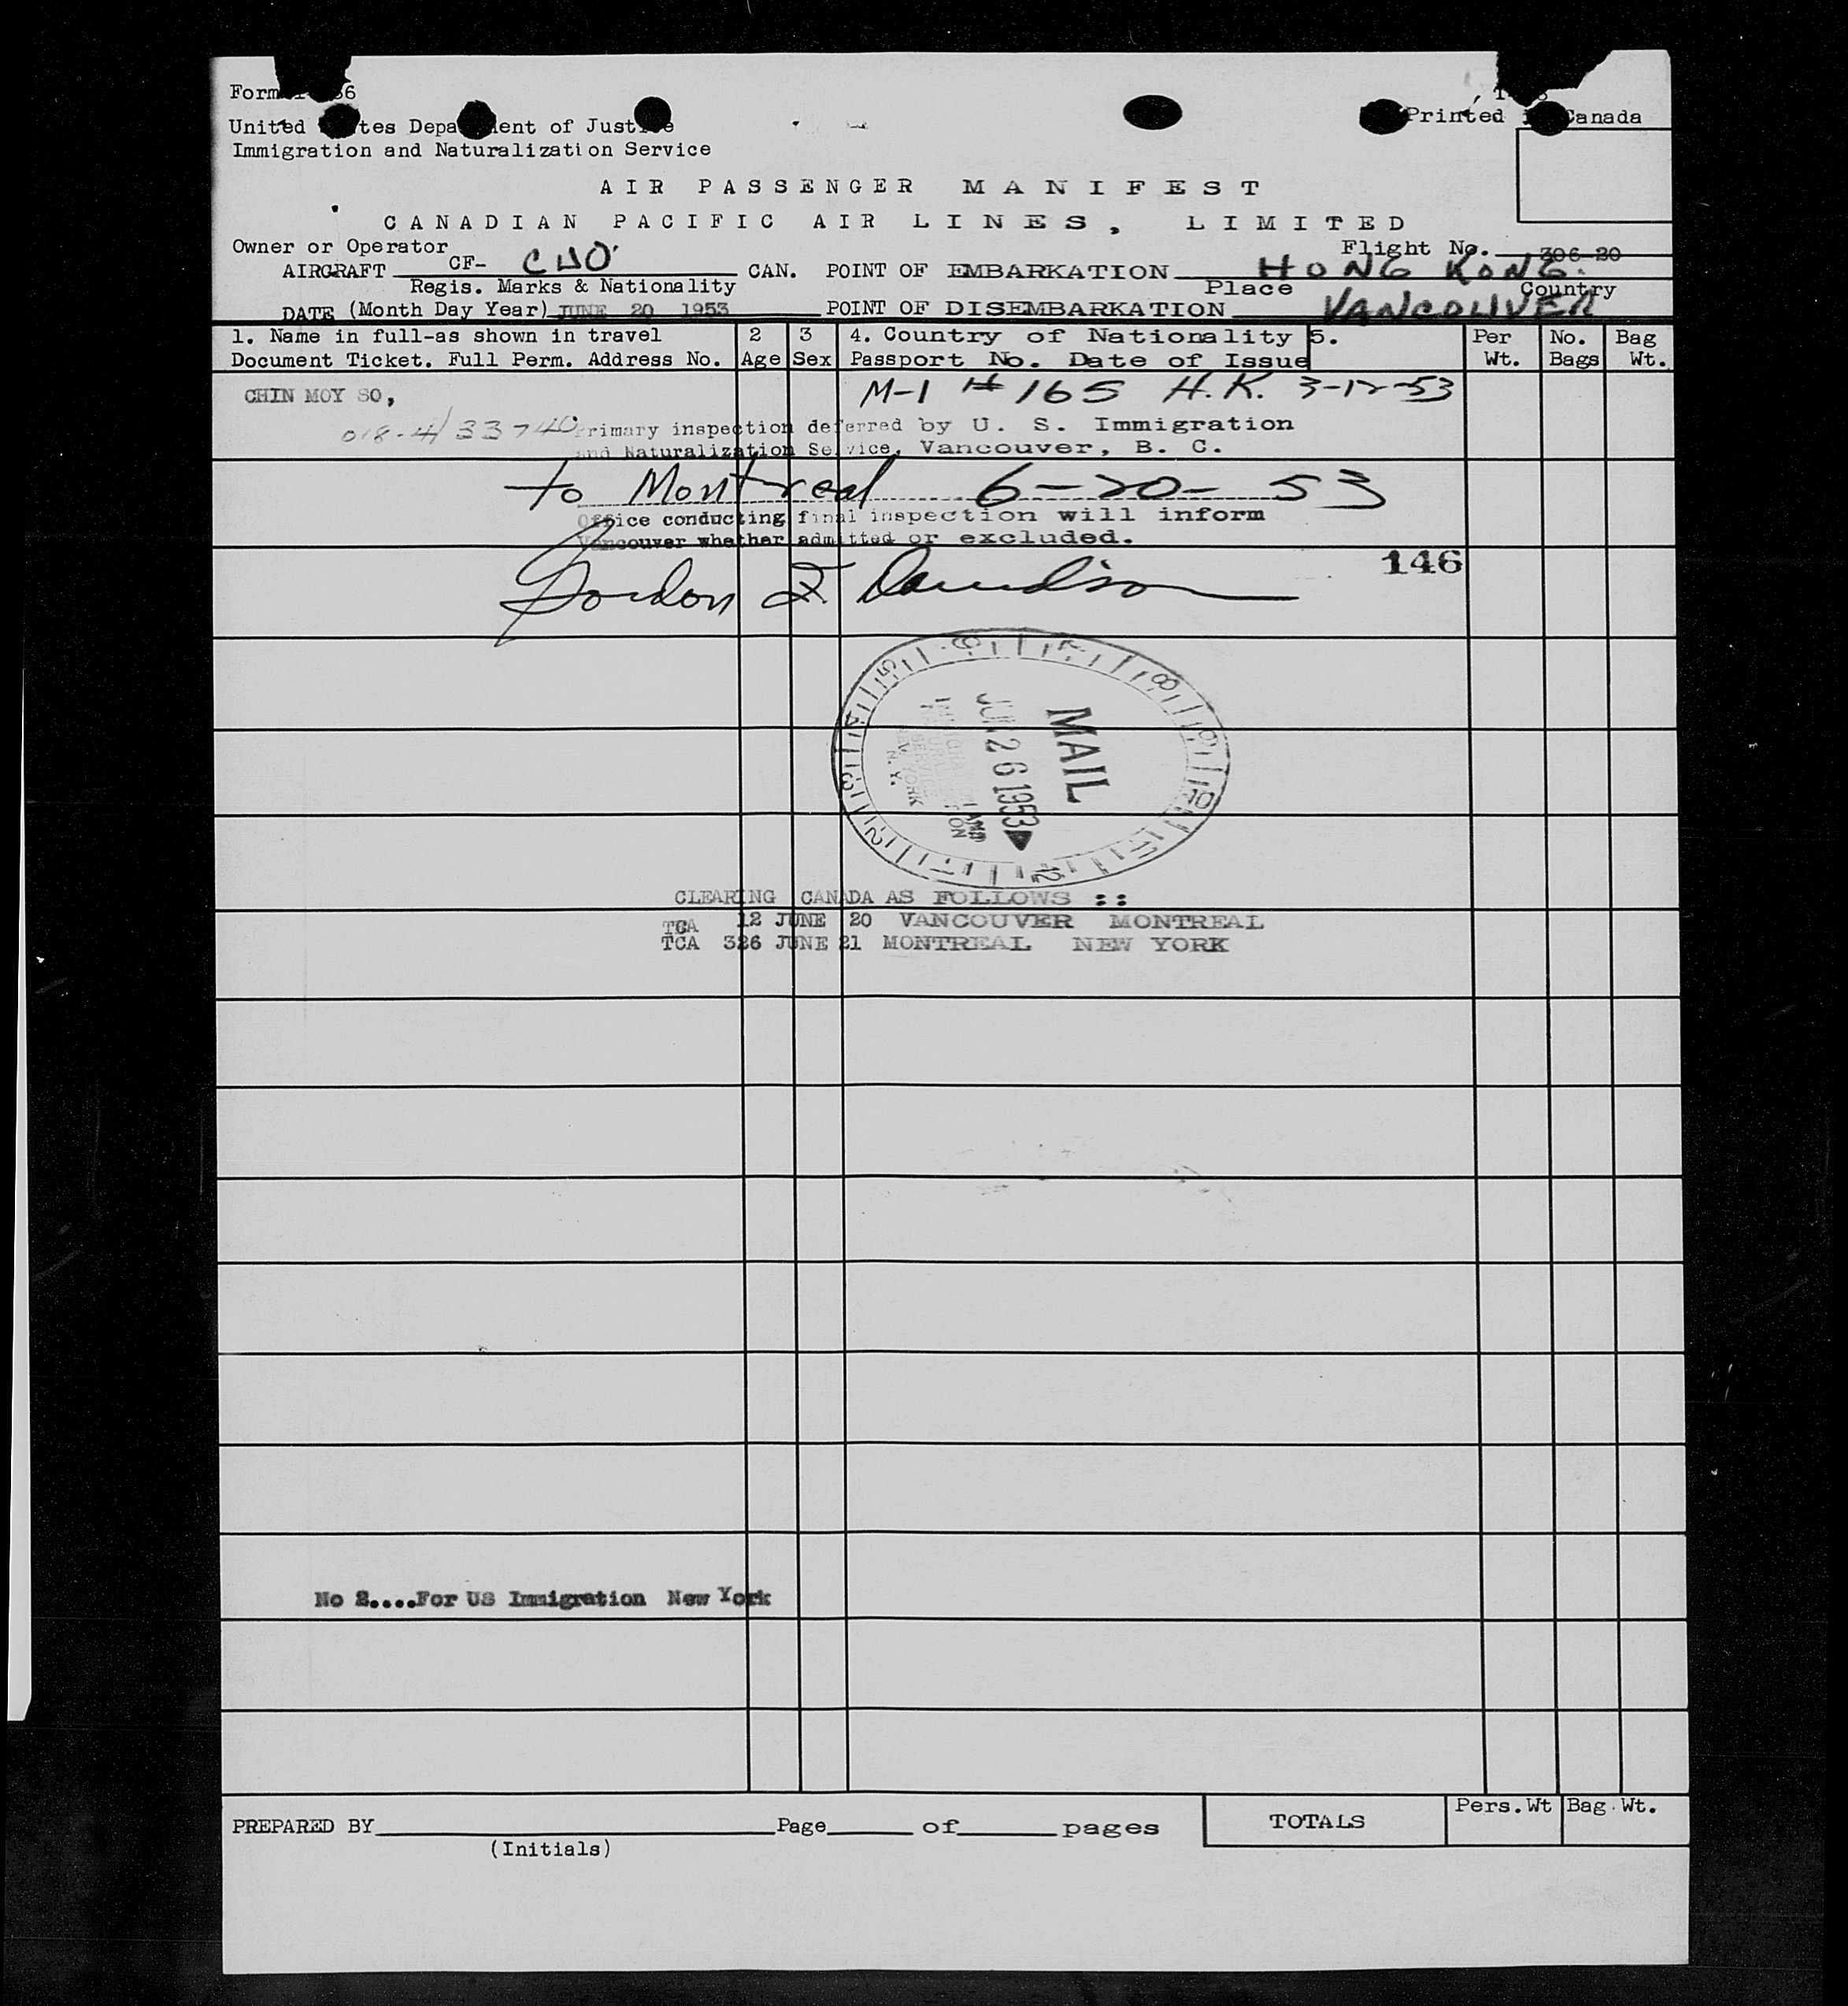 Form 
United States Department of Justice
Immigration and Naturalization Service
Printed in Canada
AIR PASSENGER MANIFEST
CANADIAN PACIFIC AIR LINES, LIMITED
Owner or Operator
Flight No. 306-20
AIRCRAFT CF- CUO CAN. POINT OF EMBARKATION HONG KONG.
Regis. Marks & Nationality Place Country
DATE (Month Day Year) JUNE 20 1953 POINT OF DISEMBARKATION VANCOUVER
1. Name in full-as shown in travel 2 3 4. Country of Nationality 5. Per No. Bag
Document Ticket. Full Perm. Address No. Age Sex Passport No. Date of Issue Wt. Bags Wt.
CHIN MOY SO, M-1 # 165 H.K. 3-12-53
018-4/33740 Primary inspection deferred by U. S. Immigration
and Naturalization Service, Vancouver, B. C.
to Montreal 6-20-53
Office conducting final inspection will inform
Vancouver whether admitted or excluded.
146
Gordon F. Davidson
MAIL
JUN 26 1953
N. Y.
CLEARING CANADA AS FOLLOWS ::
TCA 12 JUNE 20 VANCOUVER MONTREAL
TCA 326 JUNE 21 MONTREAL NEW YORK
No 2....For US Immigration New York
PREPARED BY Page of pages TOTALS Pers.Wt Bag.Wt.
(Initials)